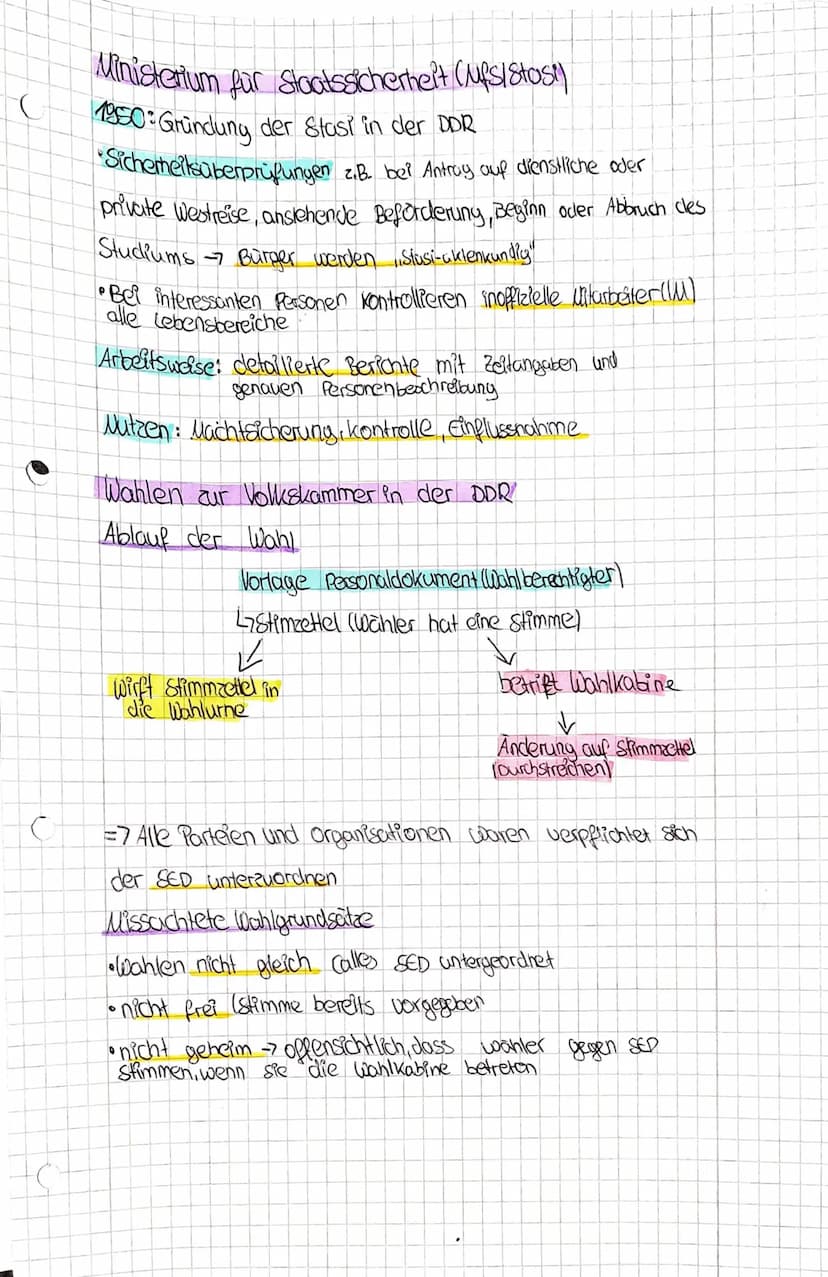 Ministerium für Staatssicherheit (MfS/Stasi)
1950: Gründung der Stasi in der DDR
• Sicherheitsüberprüfungen z.B. bei Antrag auf dienstliche oder
private Westreise, anstehende Beförderung, Beginn oder Abbruch des
Studiums → Bürger werden „Stasi-aktenkundig"
• Bei interessanten Personen kontrollieren inoffizielle Mitarbeiter (IM)
alle Lebensbereiche
Arbeitsweise: detaillierte Berichte mit Zeitangaben und
genauen Personenbeschreibung
Nutzen: Machtsicherung, Kontrolle, Einflussnahme
Wahlen zur Volkskammer in der DDR
Ablauf der Wahl
Vorlage Personaldokument (Wahlberechtigter)
↳ Stimzettel (Wähler hat eine Stimme)
↙ ↘
wirft Stimmzettel in
die Wahlurne
betritt Wahlkabine
↓
Änderung auf Stimmzettel
(Durchstreichen)
=> Alle Parteien und Organisationen waren verpflichtet sich
der SED unterzuordnen
Missachtete Wahlgrundsätze
• Wahlen nicht gleich (alles SED untergeordnet
• nicht frei (Stimme bereits vorgegeben
• nicht geheim → offensichtlich, dass Wähler gegen SED
stimmen, wenn sie die Wahlkabine betreten